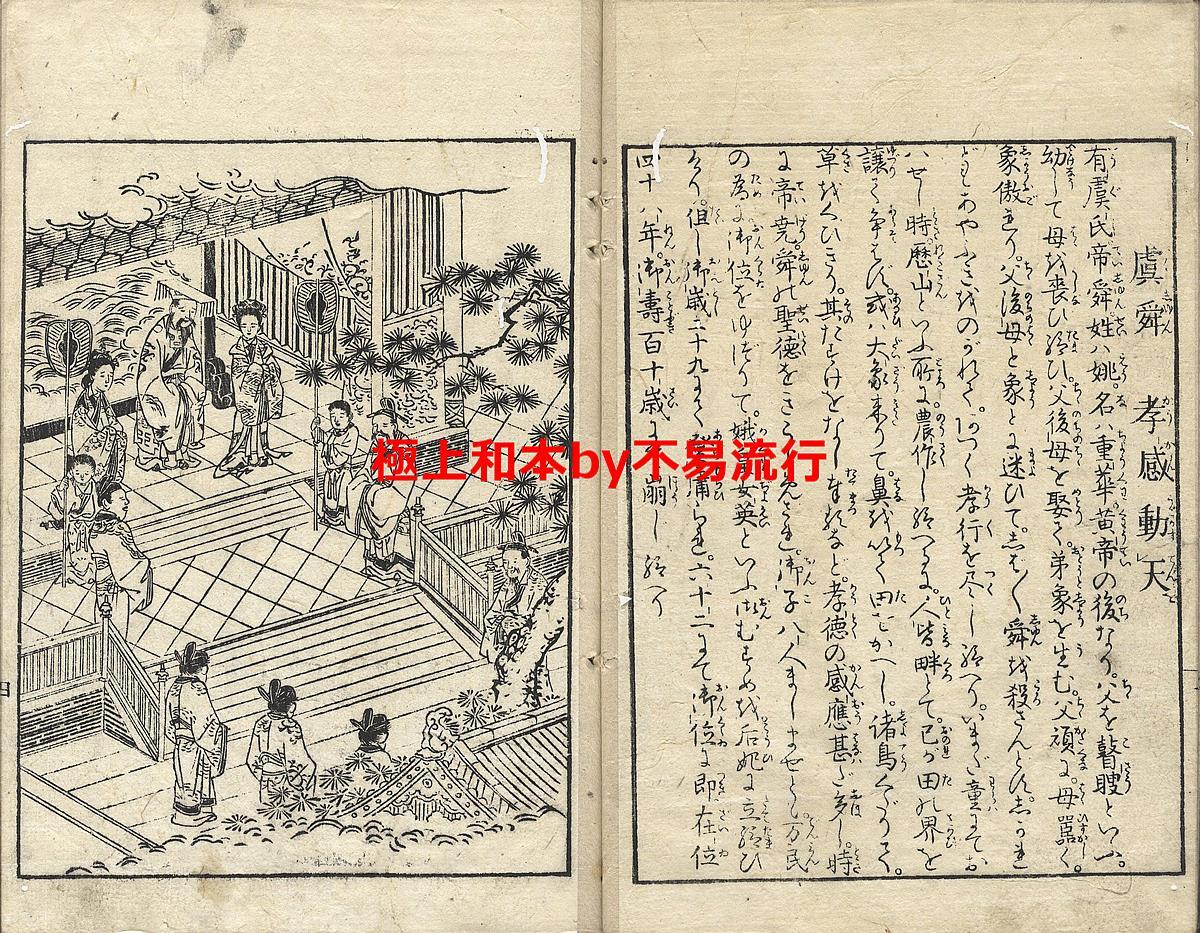 虞舜 孝感動天
有虞氏帝舜姓ハ姚。名ハ重華黄帝の後なり。父を瞽瞍といふ。
幼して母を喪ひ給ひ父後母を娶て。弟象を生む。父頑に。母嚚く。
象傲れり。父後母と象とに迷ひて。しば〳〵舜を殺さんとす。しかれ
どもあやふきをのがれて。孝行を尽し給へり。いまだ童にてお
ハせし時。歴山といふ所に農作し給へるに。人皆畔て。己が田の界を
譲て争はず。或ハ大象来りて。鼻をもて田をかへし。諸鳥くだりて。
草をくひきる。其たすけをなし奉るなど。孝徳の感應甚だ多し。時
に帝尭舜の聖徳をきこしめされ。御子八人ましませども。万民
の為に御位をゆづりて。娥皇女英といふ御むすめを后妃に立給ひ
けり。但し御歳三十九まで。六十二にて御位に即在位
四十八年。御壽百十歳にて崩し給へり
四
極上和本by不易流行